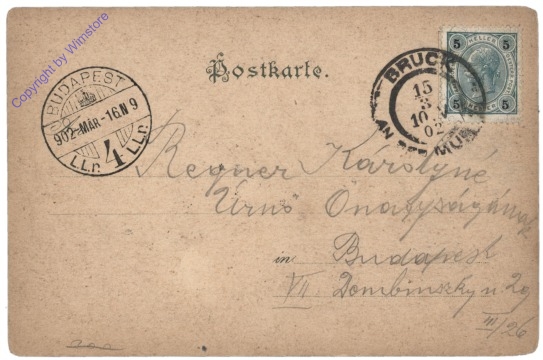 Copyright by Wimstore
Postkarte.
BUDAPEST
902-MÁR-16.N 9
4
BRUCK
15
3
10
02
AN DER MUR
5 HELLER 5
5 5
Regner Károlyné
Úrnő Önagyságának
in Budapest
VII Dombinszky u 29
III/26